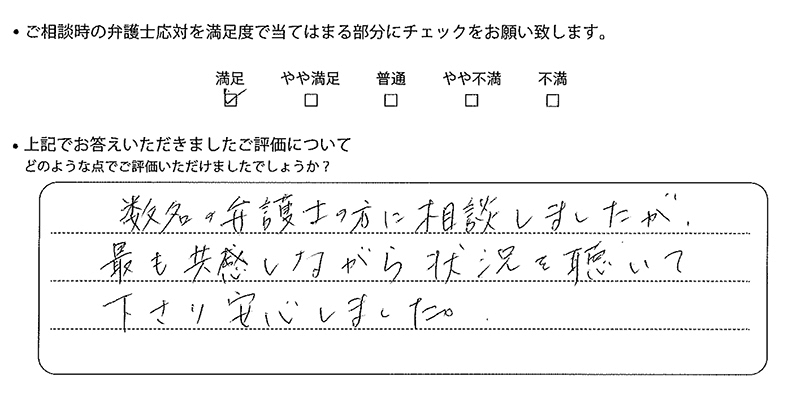 ・ご相談時の弁護士応対を満足度で当てはまる部分にチェックをお願い致します。
満足 やや満足 普通 やや不満 不満
☑ □ □ □ □
・上記でお答えいただきましたご評価について
どのような点でご評価いただけましたでしょうか？
数名の弁護士の方に相談しましたが、
最も共感しながら状況を聴いて
下さり安心しました。